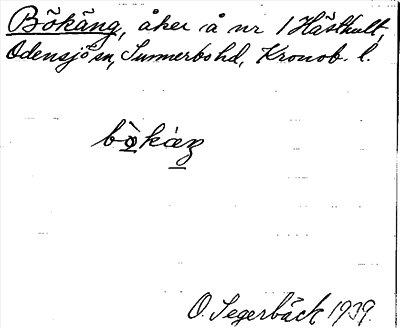 Bökäng, åker å nr 1 Hästhult,
Odensjö sn, Sunnerbo hd, Kronob. l.
O. Segerbäck 1939.